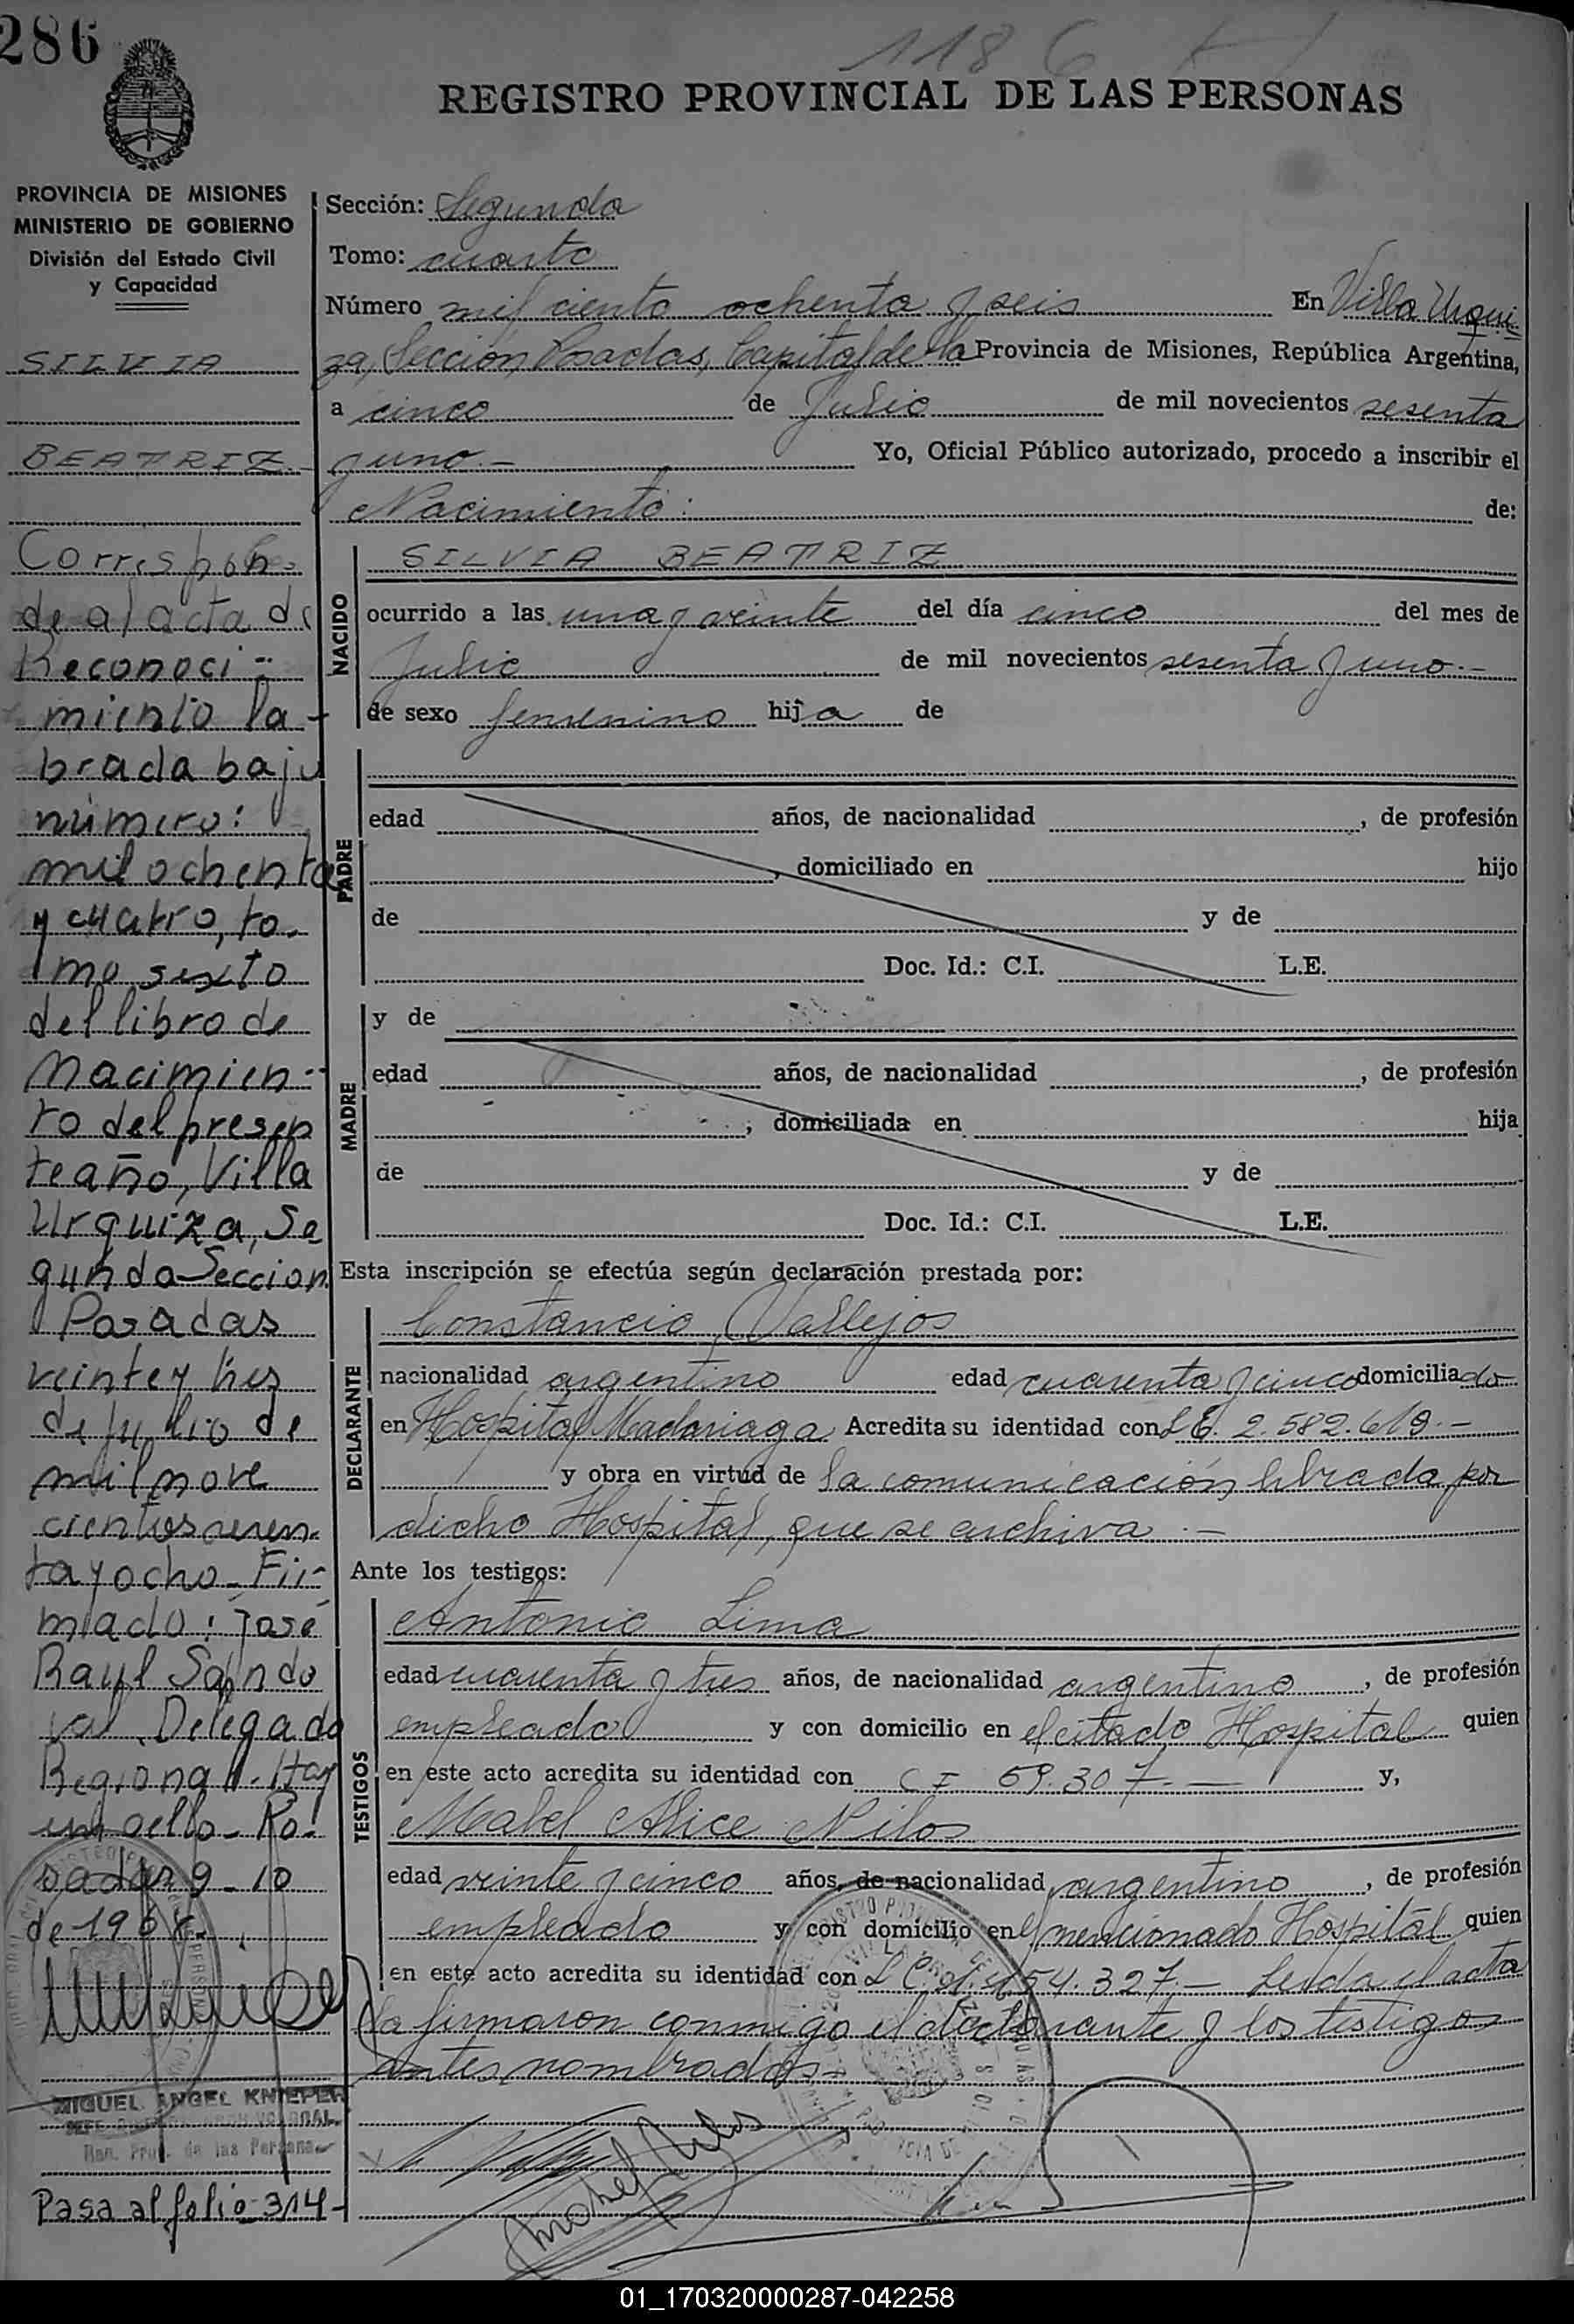 286
1186
REGISTRO PROVINCIAL DE LAS PERSONAS
PROVINCIA DE MISIONES
MINISTERIO DE GOBIERNO
División del Estado Civil
y Capacidad
SILVIA
BEATRIZ.-
Correspon-
de al acta de
Reconoci-
miento la-
brada bajo
número:
mil ochenta
y cuatro, to-
mo sexto
del libro de
Nacimien-
to del presen
te año, Villa
Urquiza, Se
gunda Seccion
Posadas
veinte y tres
de Julio de
mil nove
cientos sesen-
ta y ocho - Fir-
mado: José
Raul Sando
val. Delegado
Regional. Hay
un sello - Po-
sadas 9-10
de 1968.
MIGUEL ANGEL KNIEPER
Reg. Prov. de las Personas
Pasa al folio 314-
Sección: Segunda
Tomo: cuarto
Número mil ciento ochenta y seis En Villa Urqui
za, Sección Posadas, Capital de la Provincia de Misiones, República Argentina,
a cinco de Julio de mil novecientos sesenta
y uno.- Yo, Oficial Público autorizado, procedo a inscribir el
Nacimiento: de:
NACIDO
SILVIA BEATRIZ
ocurrido a las una y veinte del día cinco del mes de
Julio de mil novecientos sesenta y uno.-
de sexo femenino hija de
PADRE
edad años, de nacionalidad , de profesión
, domiciliado en hijo
de y de
Doc. Id.: C.I. L.E.
MADRE
y de
edad años, de nacionalidad , de profesión
, domiciliada en hija
de y de
Doc. Id.: C.I. L.E.
Esta inscripción se efectúa según declaración prestada por:
DECLARANTE
Constancio Vallejos
nacionalidad argentino edad cuarenta y cinco domiciliado
en Hospital Madariaga Acredita su identidad con L E. 2.582.619.-
y obra en virtud de la comunicación librada por
dicho Hospital, que se archiva.-
Ante los testigos:
TESTIGOS
Antonio Lima
edad cuarenta y tres años, de nacionalidad argentino, de profesión
empleado y con domicilio en el citado Hospital quien
en este acto acredita su identidad con C I 59.307.- y,
Mabel Alice Nilos
edad veinte y cinco años, de nacionalidad argentino, de profesión
empleado y con domicilio en el mencionado Hospital quien
en este acto acredita su identidad con L C. 454.327.- Leida el acta
la firmaron conmigo el declarante y los testigos
antes nombrados.-
Mabel Nilos
01_170320000287-042258